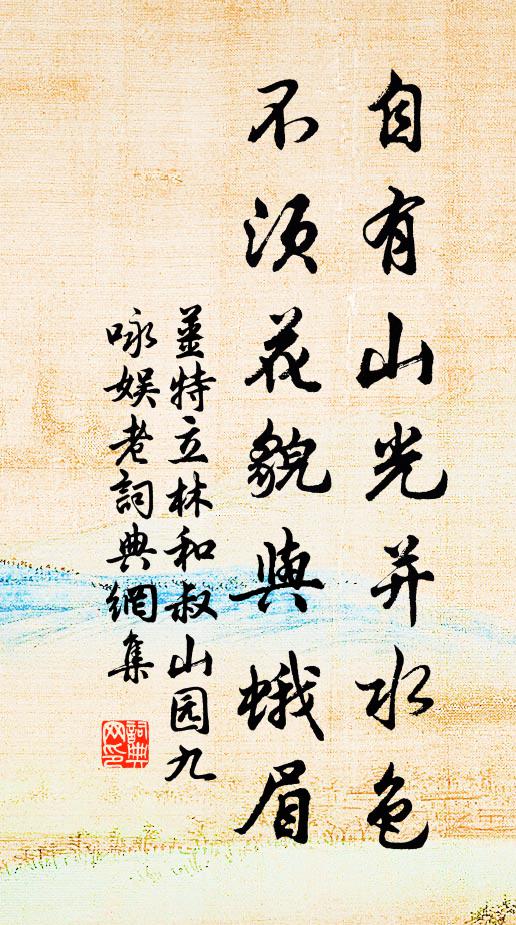 自有山光并水色
不须花貌與蛾眉
薑特立林和叔山园九
咏娱老詞典網集
詞典网印